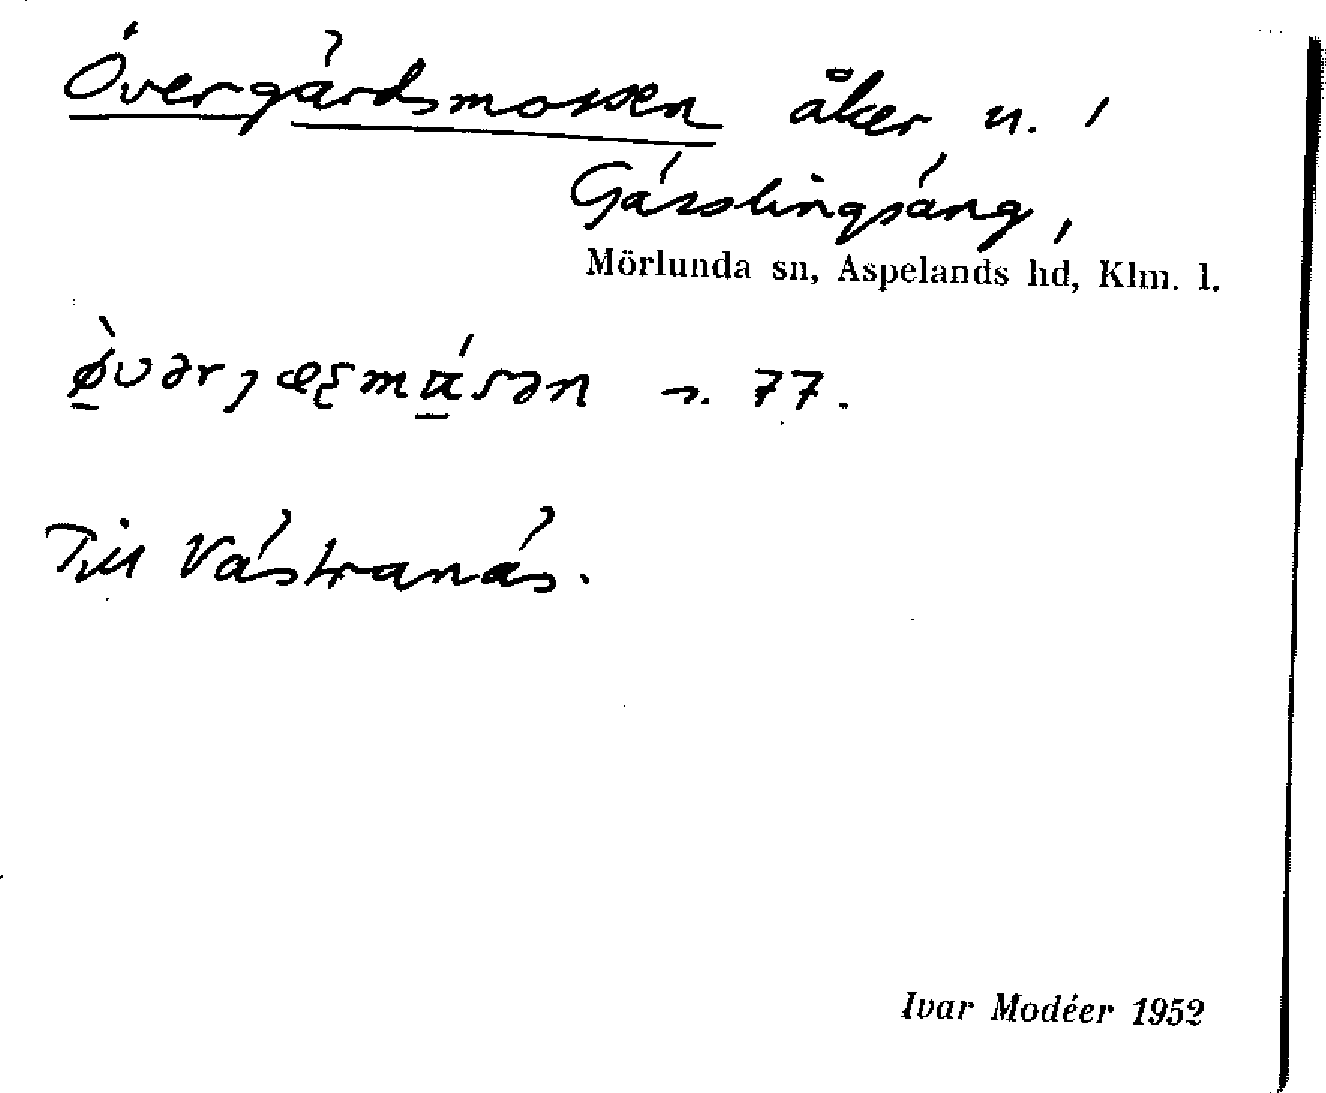 Övergärdsmossen åker n. i
Gässlingsäng,
Mörlunda sn, Aspelands hd, Klm. l.
s. 77.
Till Västranäs.
Ivar Modéer 1952